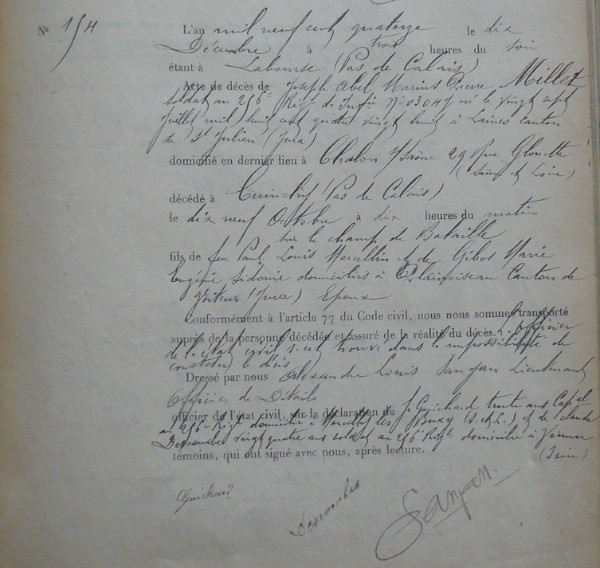 N° 154
L'an mil neuf cent quatorze le dix
Décembre à trois heures du soir
étant à Labourse (Pas de Calais)
Acte de décès de Joseph Abel Marius Pierre Millet
soldat au 256e Régt de Infie N° 03047 né le vingt sept
Juillet mil huit cent quatre vingt huit à Lains canton
de St Julien (Jura)
domicilié en dernier lieu à Chalon s/Saône 29 Rue Gloriette
(Saône et Loire)
décédé à Cuinchy (Pas de Calais)
le dix neuf Octobre à dix heures du matin
sur le champ de Bataille
fils de feu Paul Louis Marcellin et de Gibos Marie
Eugénie Sidonie domiciliés à Canton de
Voiteur (Jura) Epoux
Conformément à l'article 77 du Code civil, nous nous sommes transporté
auprès de la personne décédée et assuré de la réalité du décès. L'officier
de l'état civil s'est trouvé dans l'impossibilité de
constater le décès
Dressé par nous Alexandre Louis Sanyan Lieutenant
Officier de Détails
officier de l'état civil, sur la déclaration de Guichard trente ans Capal
au 256e Régt domicilié à les Buxy (S.&L.) et de Claude
Descombes vingt quatre ans soldat au 256 Régt domicilié à Vienne
témoins, qui ont signé avec nous, après lecture. (Isère)
Guichard
Descombes